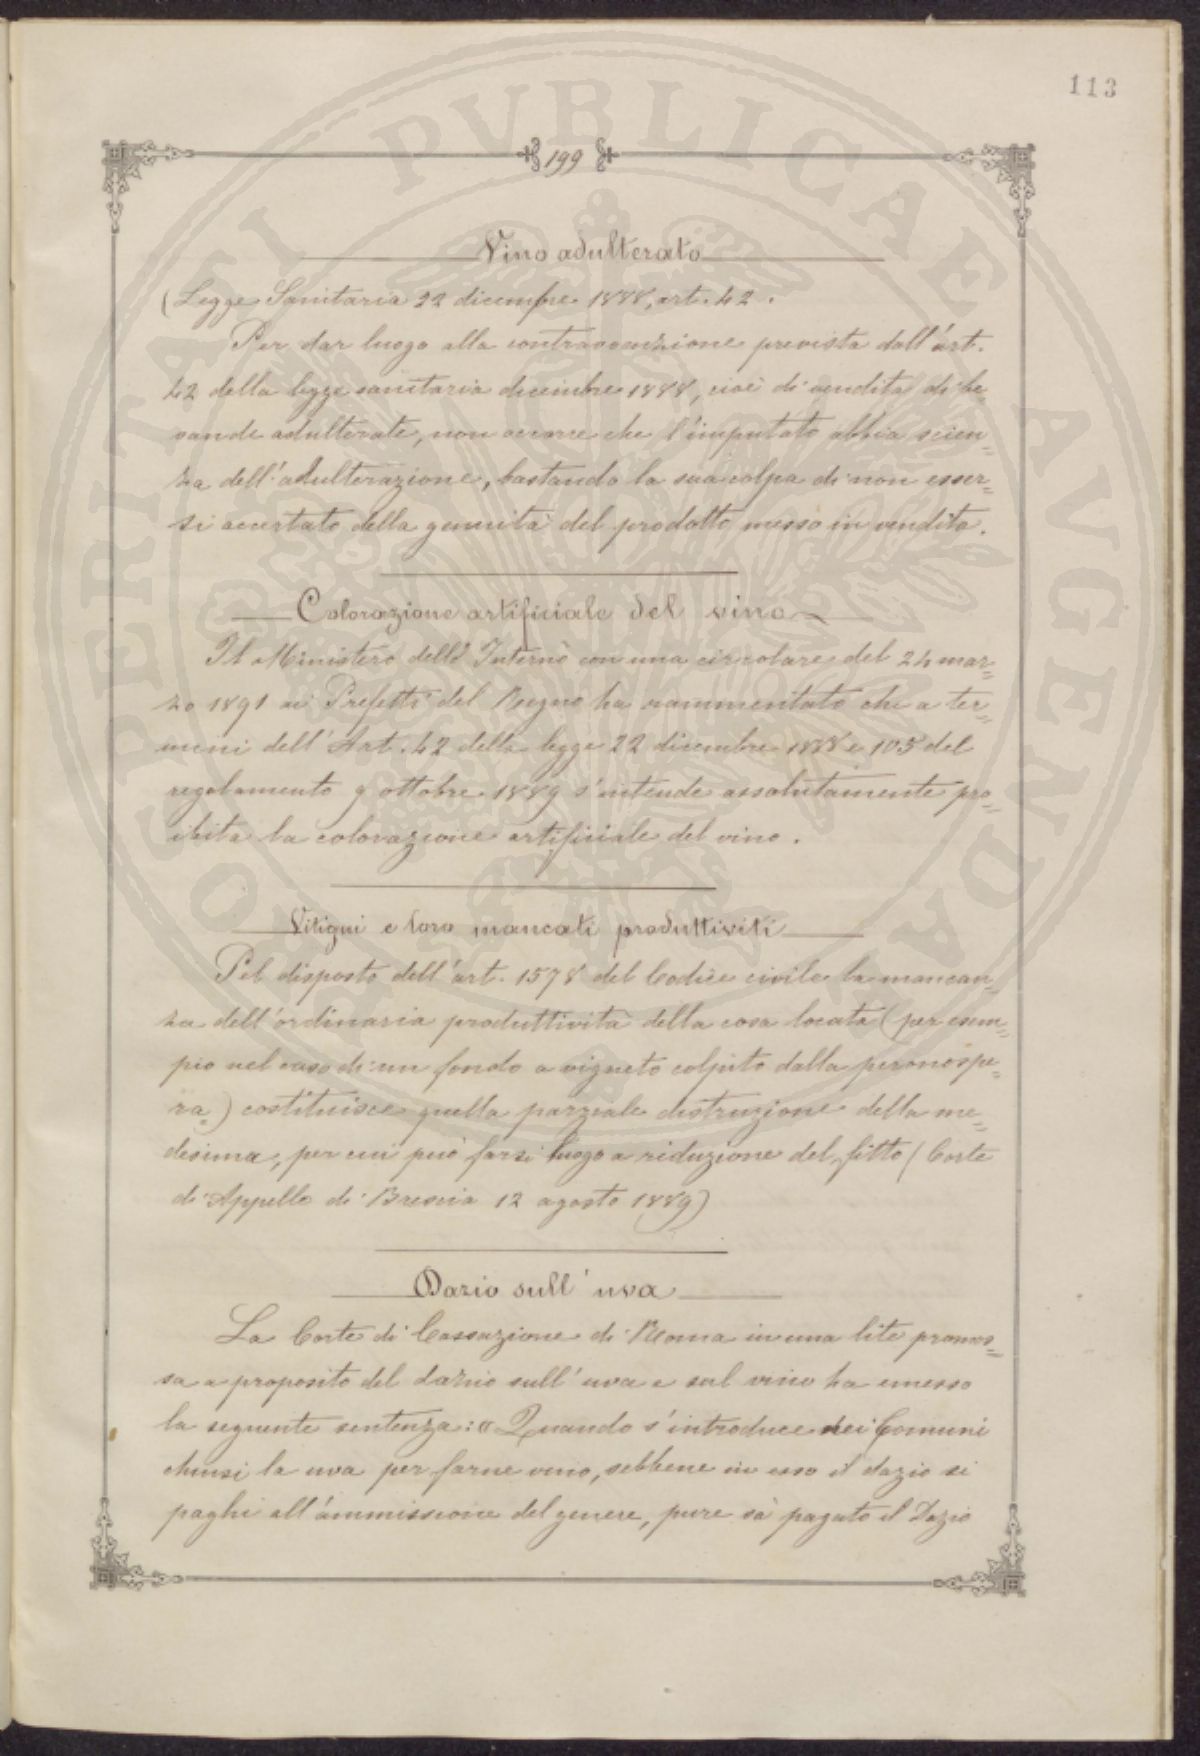 113
199
Vino adulterato
(Legge Sanitaria 22 dicembre 1888, art. 42.
Per dar luogo alla contravvenzione prevista dall'art.
42 della legge sanitaria dicembre 1888, cioè di vendita di be
vande adulterate, non occorre che l'imputato abbia scien=
za dell'adulterazione, bastando la sua colpa di non esser=
si accertato della genuità del prodotto messo in vendita.
Colorazione artificiale del vino
Il Ministero dell'Interno con una circolare del 24 mar=
zo 1891 ai Prefetti del Regno ha rammentato che a ter=
mini dell'Art. 42 della legge 22 dicembre 1888 e 105 del
regolamento 9 ottobre 1889 s'intende assolutamente pro=
ibita la colorazione artificiale del vino.
Vitigni e loro mancati produttiviti
Pel disposto dell'art. 1578 del Codice civile la mancan=
za dell'ordinaria produttività della cosa locata (per esem=
pio nel caso di un fondo a vigneto colpito dalla peronospe=
ra) costituisce quella parziale distruzione della me=
desima, per cui può farsi luogo a riduzione del fitto (Corte
di Appello di Brescia 12 agosto 1889)
Dazio sull'uva
La Corte di Cassazione di Roma in una lite promos=
sa a proposito del dazio sull'uva e sul vino ha emesso
la seguente sentenza: «Quando s'introduce nei Comuni
chiusi la uva per farne vino, sebbene in esso il dazio si
paghi all'ammissione del genere, pure sà pagato il Dazio
PROSPERITATI PVBLICAE AVGENDAE